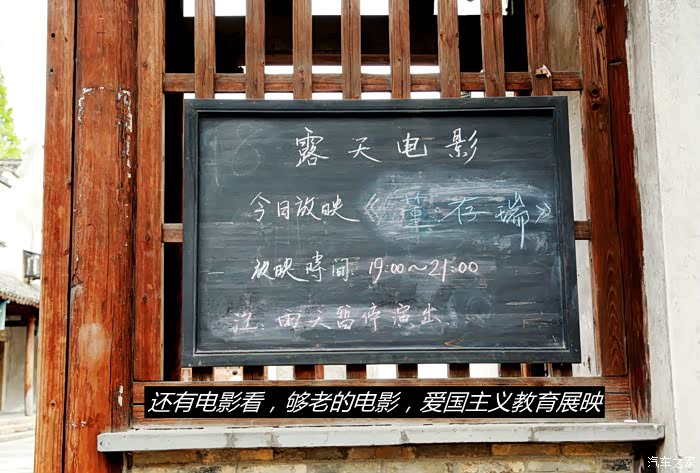 露天电影
今日放映《董存瑞》
放映時间：19:00～21:00
注：雨天暂停演出
还有电影看，够老的电影，爱国主义教育展映
汽车之家